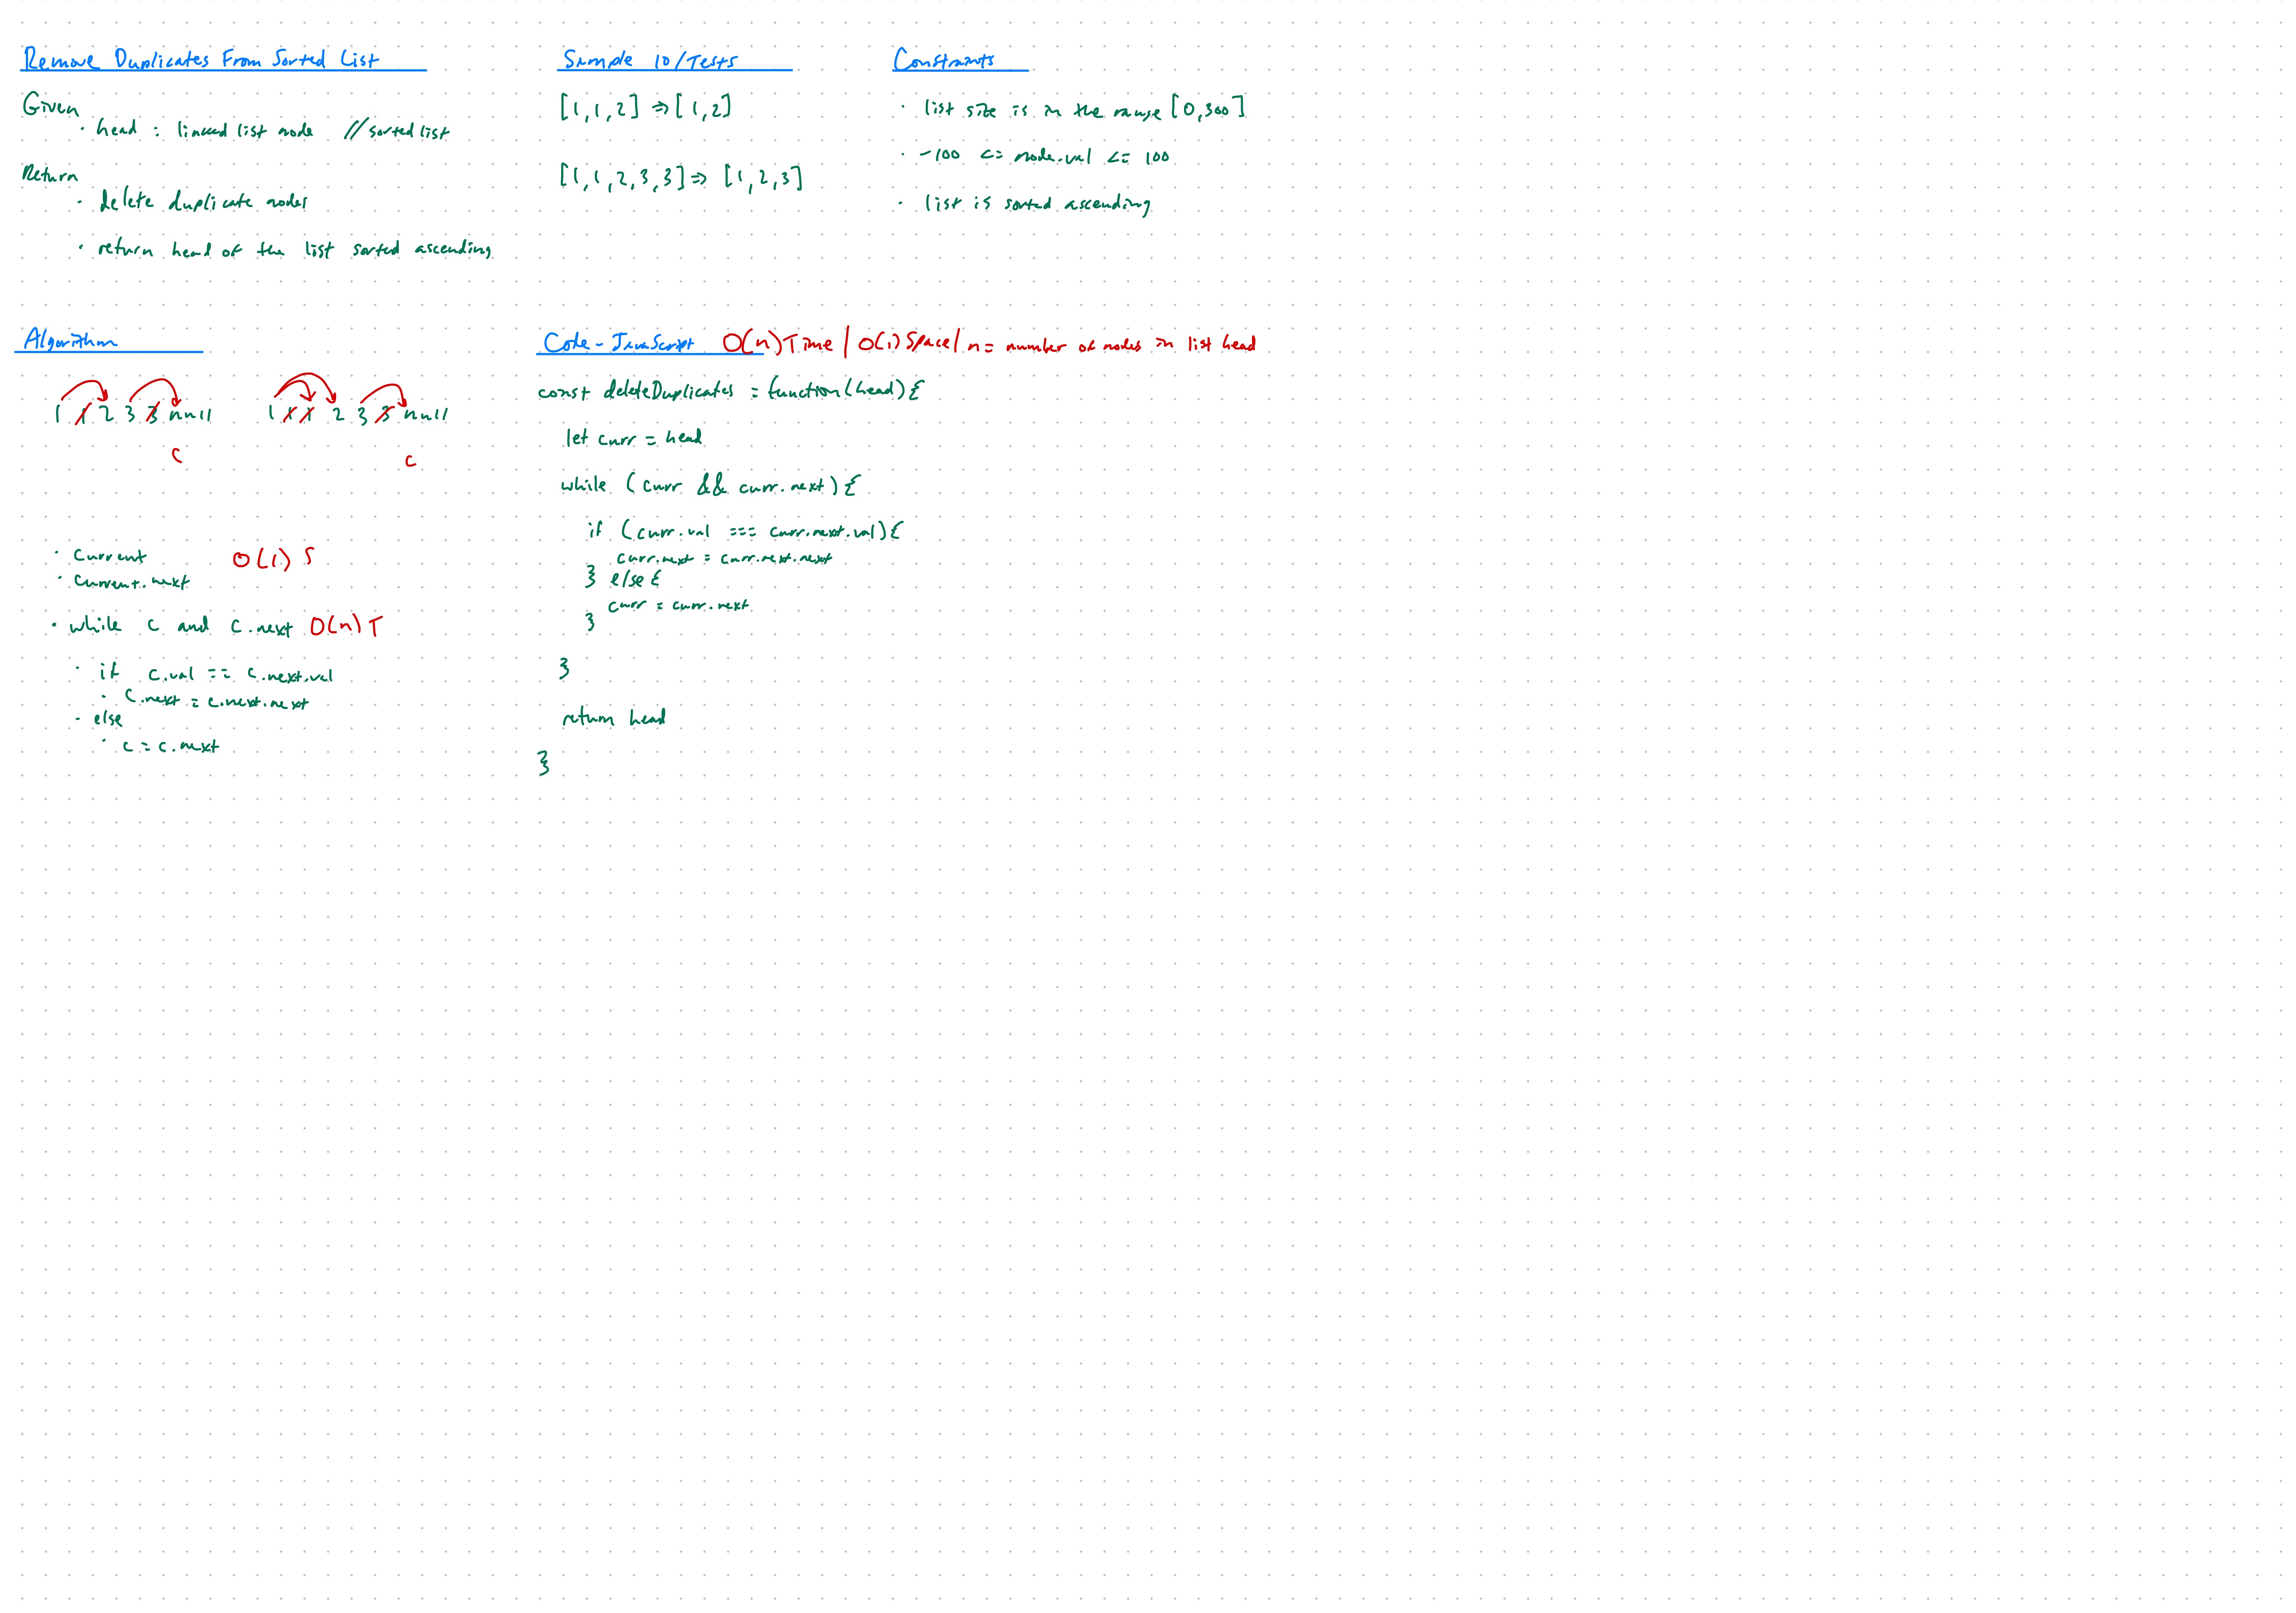 Remove Duplicates From Sorted List
Given
· head : linked list node // sorted list
Return
· delete duplicate nodes
· return head of the list sorted ascending
Sample IO/Tests
[1,1,2] => [1,2]
[1,1,2,3,3] => [1,2,3]
Constraints
· list size is in the range [0,300]
· -100 <= node.val <= 100
· list is sorted ascending
Algorithm
1 1 2 3 3 null
c
1 1 1 2 3 3 null
c
· Current O(1) S
· Current.next
· while c and c.next O(n) T
· if c.val == c.next.val
· c.next = c.next.next
· else
· c = c.next
Code - JavaScript O(n) Time | O(1) Space | n = number of nodes in list head
const deleteDuplicates = function(head){
let curr = head
while (curr && curr.next){
if (curr.val === curr.next.val){
curr.next = curr.next.next
} else {
curr = curr.next
}
}
return head
}